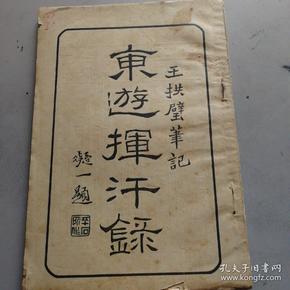 王拱璧筆記
東遊揮汗錄
凝一題
孔夫子旧书网